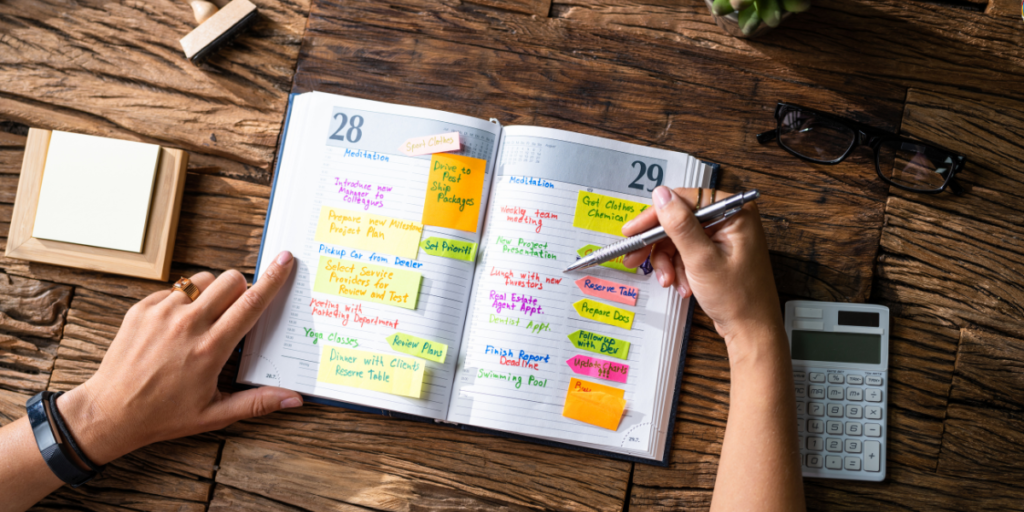 28
Sport Clothes
Meditation
Drive to
Post
Ship
Packages
Introduce new
Manager to
Colleagues
Prepare new Milestone
Project Plan
Set Prioriti
Pickup Car from Dealer
Select Service
Providers for
Review and Test
Meeting with
Marketing Department
Yoga Classes
Review Plans
Dinner with Client
Reserve Table
29
Meditation
Get Clothes
Chemical
Weekly team
meeting
New Project
Presentation
Lunch with new
Investors
Reserve Table
Real Estate
Agent Appt.
Prepare Docs
Dentist Appt.
Followup
with Dev
Finish Report
Deadline
Update
Swimming Pool